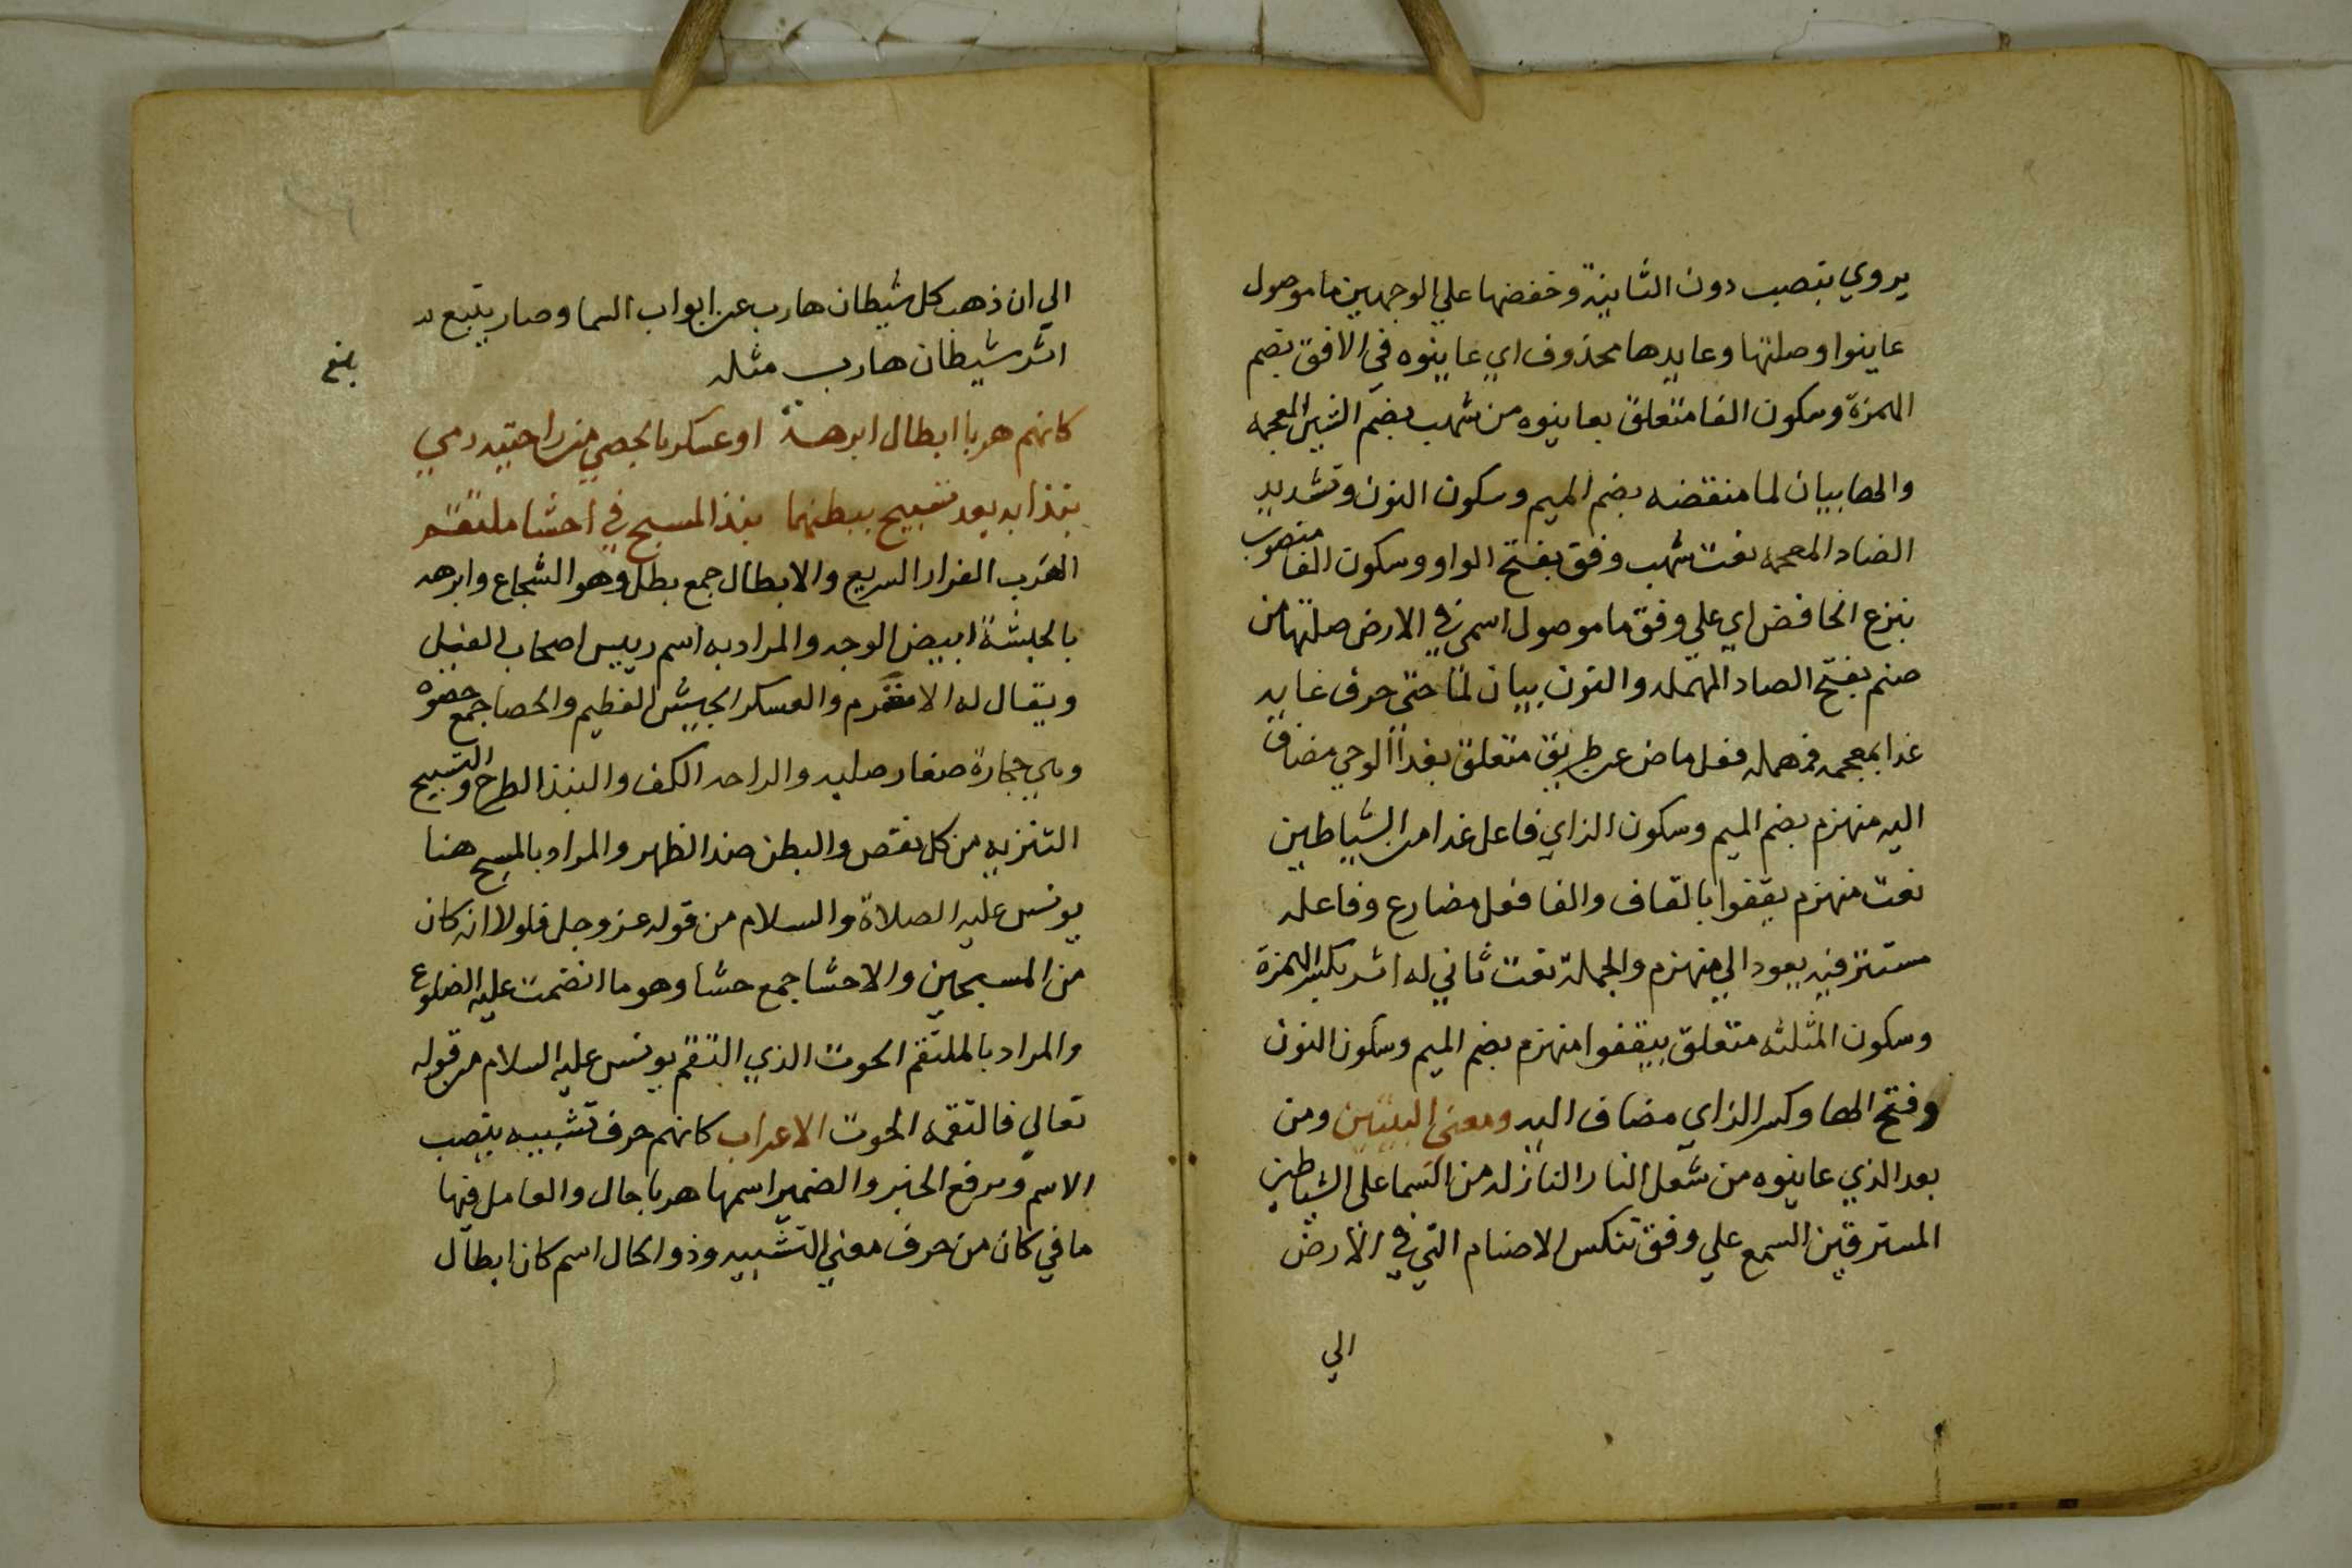 يروي بنصب دون الثانية وخفضها علي الوجهين ما موصول
عاينوا وصلتها وعايدها محذوف اي عاينوه في الافق بضم
الهمزة وسكون الفا متعلق بعاينوه من شهب بضم الشين المعجمه
والها بيان لما منقضه بضم الميم وسكون النون وتشديد
الضاد المعجمه نعت شهب وفق بفتح الواو وسكون الفا منصوب
بنزع الخافض اي علي وفق ما موصول اسمي في الارض صلتها من
صنم بفتح الصاد المهمله والنون بيان لما حتى حرف غايه
غدا بمعجمه فمهمله فعل ماض عن طريق متعلق بغدا الوحي مضاف
اليه منهزم بضم الميم وسكون الزاي فاعل غدا من الشياطين
نعت منهزم يقفوا بالقاف والفا فعل مضارع وفاعله
مستتر فيه يعود الي منهزم والجملة نعت ثاني له اثر بكسر الهمزة
وسكون المثلثه متعلق بيقفوا منهزم بضم الميم وسكون النون
وفتح الها وكسر الزاي مضاف اليه ومعني البيتين ومن
بعد الذي عاينوه من شعل النار النازله من السما علي الشياطين
المسترقين السمع علي وفق تنكس الاصنام التي في الارض
الي
الي ان ذهب كل شيطان هارب عن ابواب السما وصار يتبع
اثر شيطان هارب مثله
بلغ
كانهم هربا ابطال ابرهة او عسكر بالحصي من راحتيه رمي
نبذا به بعد تسبيح ببطنهما نبذ المسبح في احشا ملتقم
الهرب الفرار السريع والابطال جمع بطل وهو الشجاع وابرهه
بالحبشة ابيض الوجه والمراد به اسم رييس اصحاب الفيل
ويقال له الاشرم والعسكر الجيش العظيم والحصا جمع حصوه
وهي حجارة صغار صلبه والراحه الكف والنبذ الطرح والتسبيح
التنزيه من كل نقص والبطن ضد الظهر والمراد بالمسبح هنا
يونس عليه الصلاة والسلام من قوله عز وجل فلولا انه كان
من المسبحين والاحشا جمع حشا وهو ما انضمت عليه الضلوع
والمراد بالملتقم الحوت الذي التقم يونس عليه السلام من قوله
تعالي فالتقمه الحوت الاعراب كانهم حرف تشبيه ينصب
الاسم ويرفع الخبر والضمير اسمها هربا حال والعامل فيها
ما في كان من حرف معني التشبيه وذو الحال اسم كان ابطال